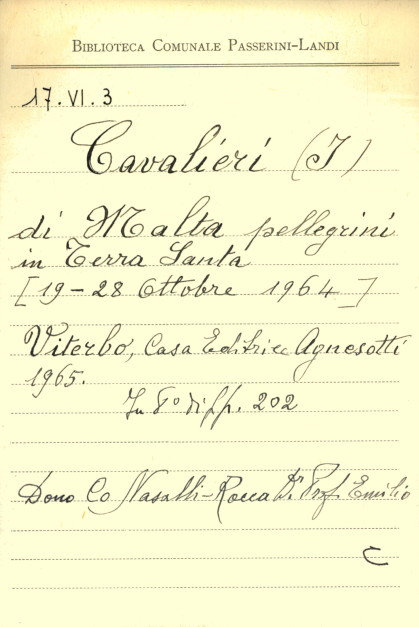 BIBLIOTECA COMUNALE PASSERINI-LANDI
17.VI.3
Cavalieri (I)
di Malta pellegrini
in Terra Santa
[19-28 Ottobre 1964]
Viterbo, Casa Editrice Agnesotti
1965.
In 8° di pp. 202
Dono Co Nasalli-Rocca Dr. Prof. Emilio
C